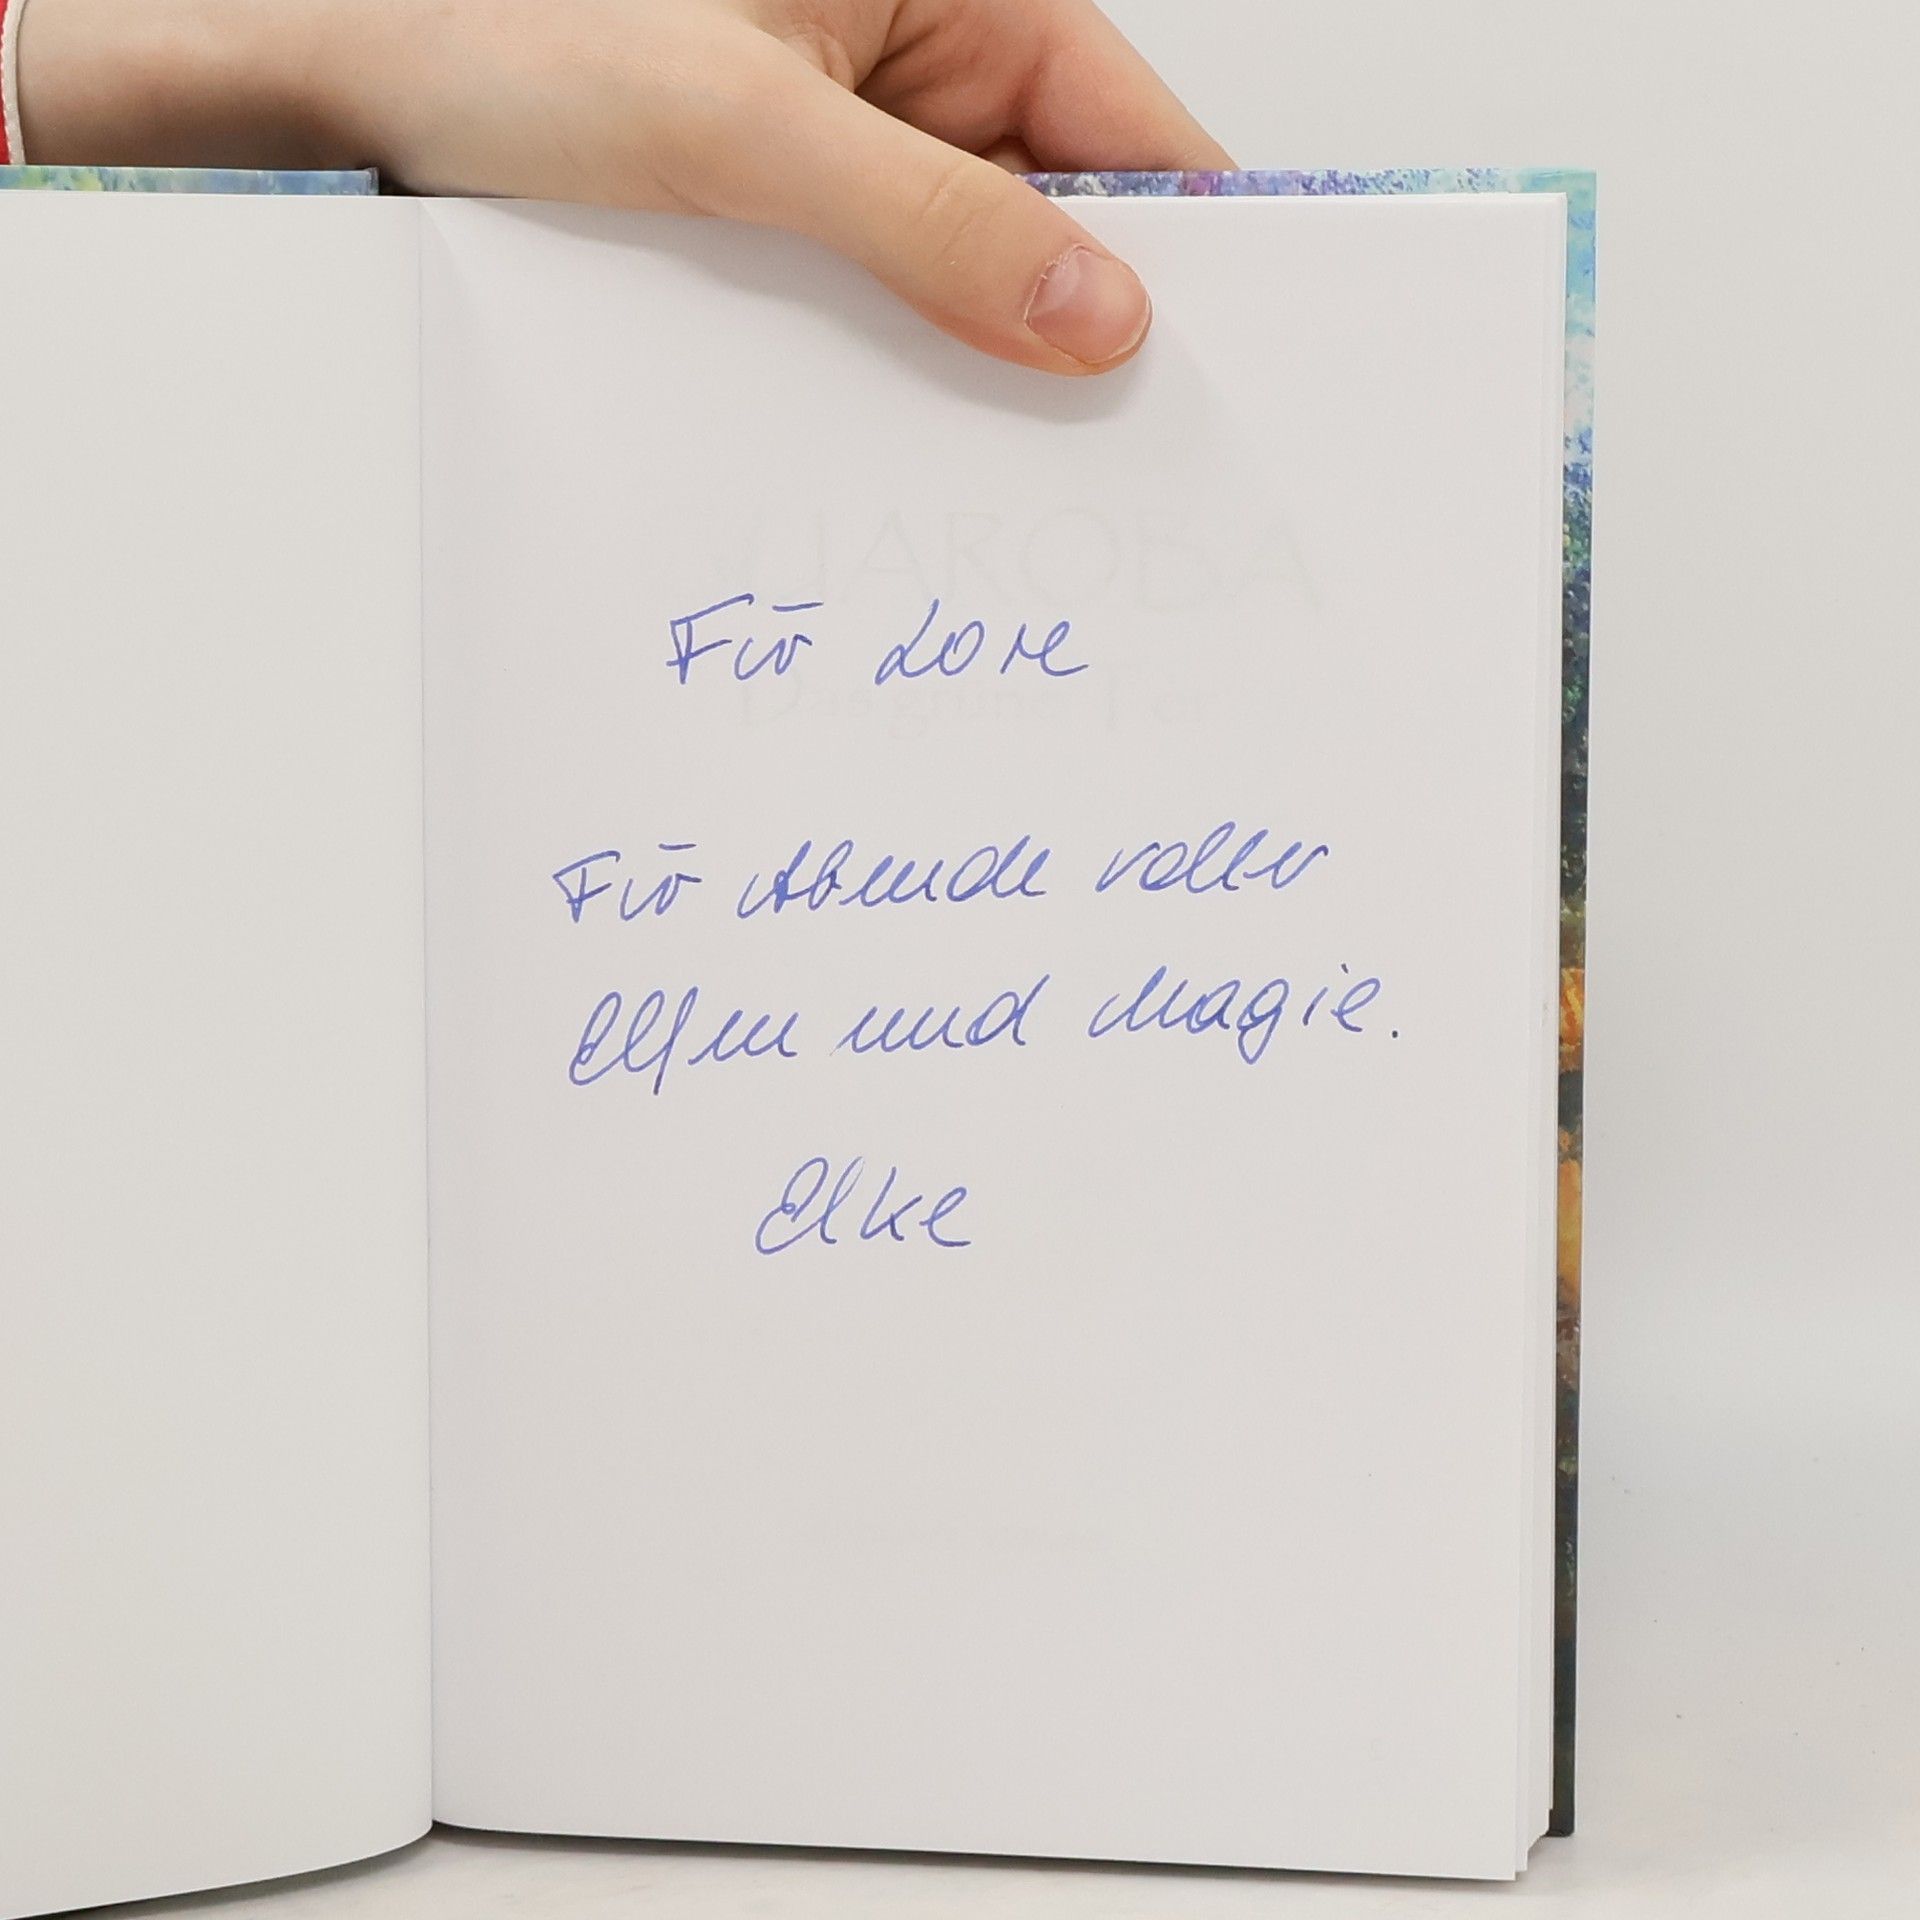 Für Lore
Für Abende voller
Elfen und Magie.
Elke